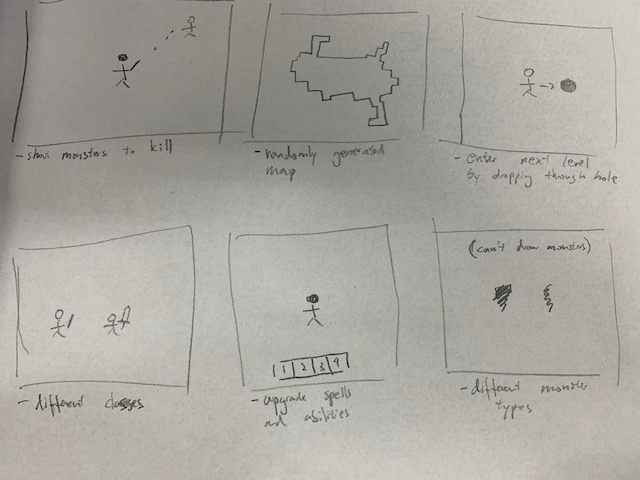 - shoot monsters to kill
- randomly generated
map
- enter next level
by dropping through hole
- different classes
1 2 3 4
- upgrade spells
and abilities
(can't draw monsters)
- different monster
types